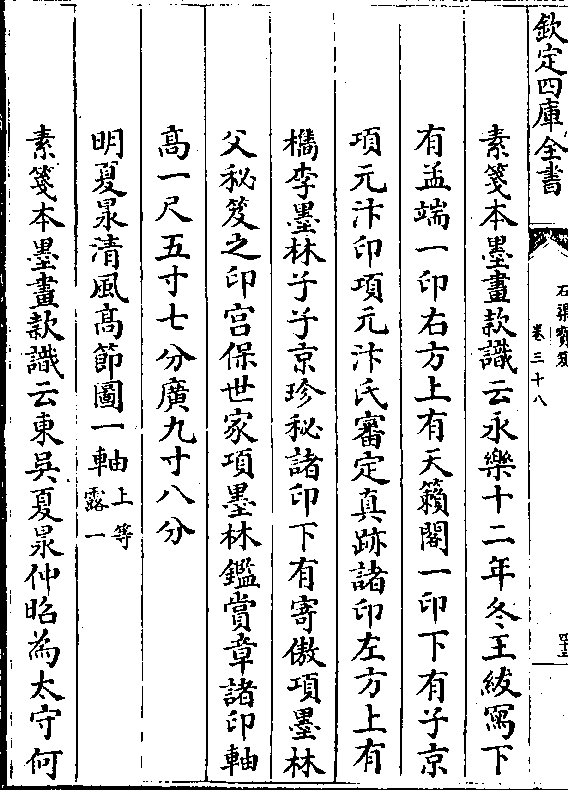 欽定四庫全書
石渠寶笈
卷三十八
素箋本墨畫款識云永樂十二年冬王紱寫下
有孟端一印右方上有天籟閣一印下有子京
項元汴印項元汴氏審定真跡諸印左方上有
檇李墨林子子京珍秘諸印下有寄傲項墨林
父秘笈之印宫保世家項墨林鑑賞章諸印軸
髙一尺五寸七分廣九寸八分
明夏㫤清風髙節圖一軸上等
露一
素箋本墨畫款識云東吳夏㫤仲昭為太守何